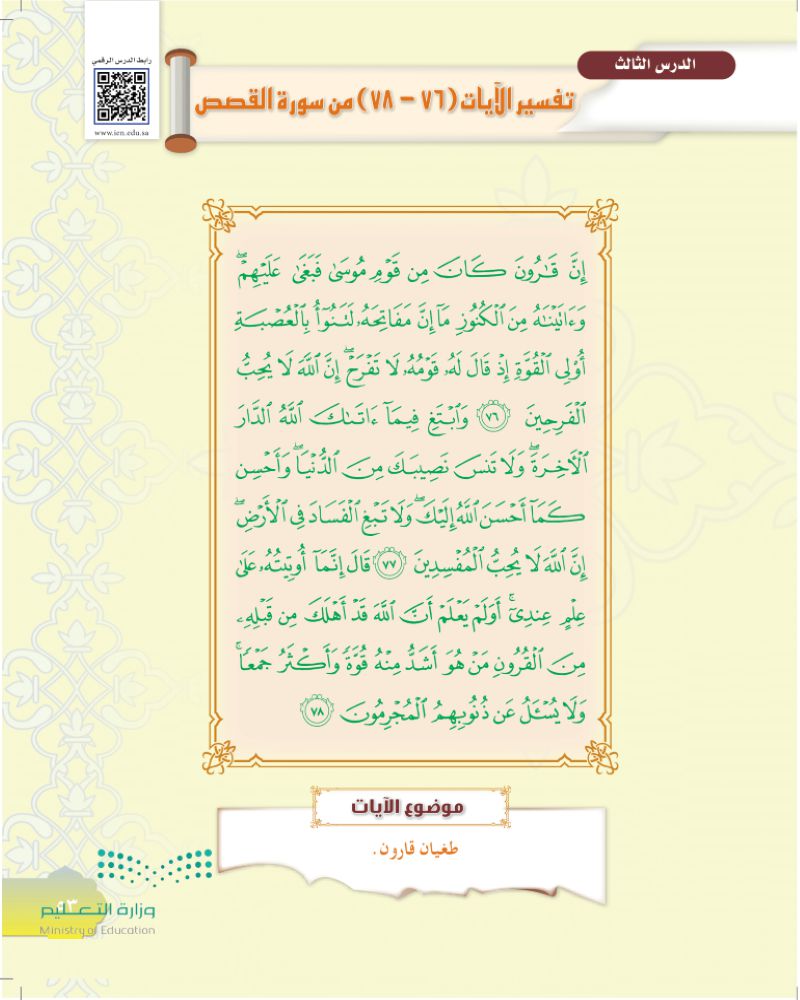 الدرس الثالث
رابط الدرس الرقمي
www.ien.edu.sa
تفسير الآيات (٧٦ – ٧٨) من سورة القصص
إِنَّ قَٰرُونَ كَانَ مِن قَوْمِ مُوسَىٰ فَبَغَىٰ عَلَيْهِمْ ۖ
وَءَاتَيْنَٰهُ مِنَ ٱلْكُنُوزِ مَآ إِنَّ مَفَاتِحَهُۥ لَتَنُوٓأُ بِٱلْعُصْبَةِ
أُو۟لِى ٱلْقُوَّةِ إِذْ قَالَ لَهُۥ قَوْمُهُۥ لَا تَفْرَحْ ۖ إِنَّ ٱللَّهَ لَا يُحِبُّ
ٱلْفَرِحِينَ ٧٦ وَٱبْتَغِ فِيمَآ ءَاتَىٰكَ ٱللَّهُ ٱلدَّارَ
ٱلْءَاخِرَةَ ۖ وَلَا تَنسَ نَصِيبَكَ مِنَ ٱلدُّنْيَا ۖ وَأَحْسِن
كَمَآ أَحْسَنَ ٱللَّهُ إِلَيْكَ ۖ وَلَا تَبْغِ ٱلْفَسَادَ فِى ٱلْأَرْضِ ۖ
إِنَّ ٱللَّهَ لَا يُحِبُّ ٱلْمُفْسِدِينَ ٧٧ قَالَ إِنَّمَآ أُوتِيتُهُۥ عَلَىٰ
عِلْمٍ عِندِىٓ ۚ أَوَلَمْ يَعْلَمْ أَنَّ ٱللَّهَ قَدْ أَهْلَكَ مِن قَبْلِهِۦ
مِنَ ٱلْقُرُونِ مَنْ هُوَ أَشَدُّ مِنْهُ قُوَّةً وَأَكْثَرُ جَمْعًا ۚ
وَلَا يُسْـَٔلُ عَن ذُنُوبِهِمُ ٱلْمُجْرِمُونَ ٧٨
موضوع الآيات
طغيان قارون .
وزارة التعليم
Ministry of Education
٩٣